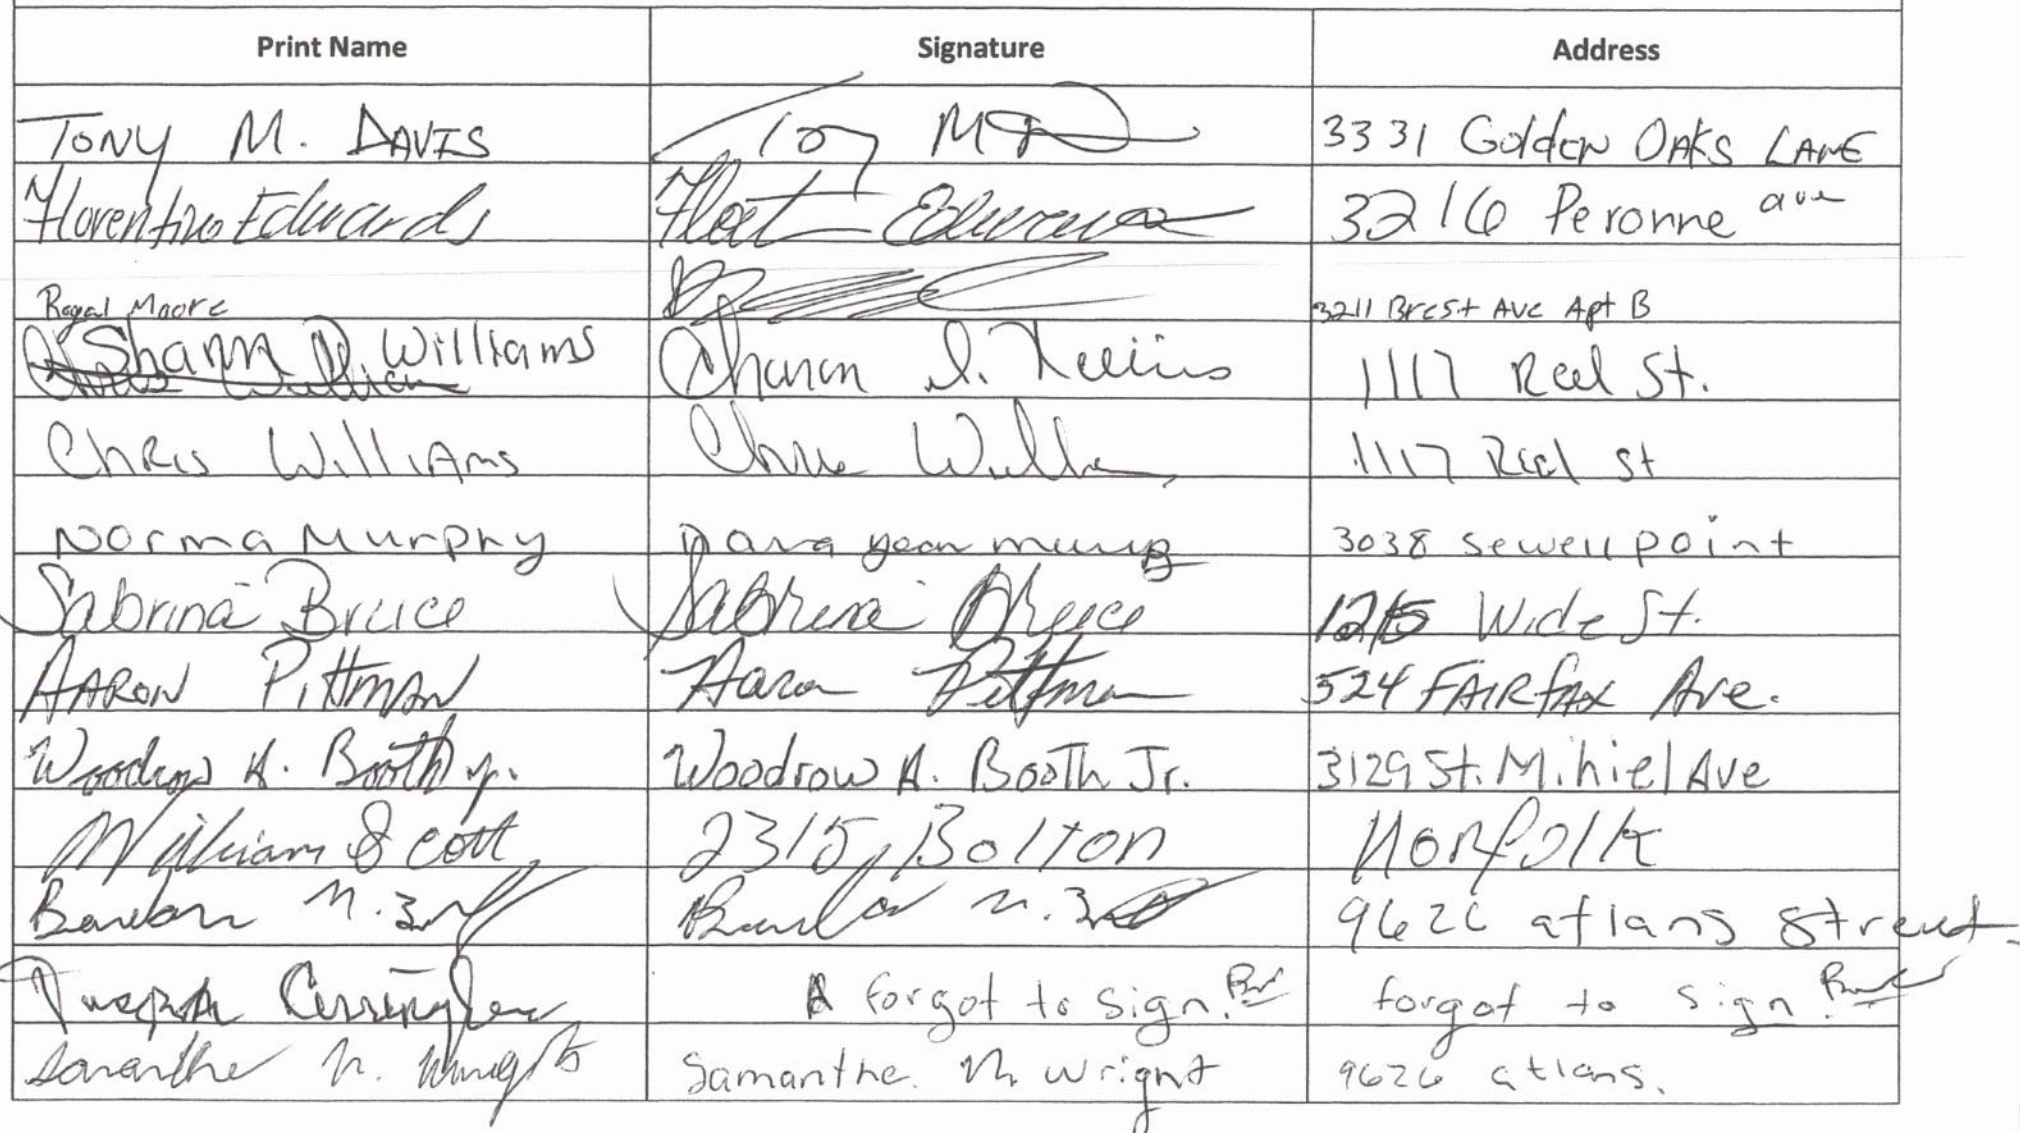 Print Name Signature Address
TONY M. DAVIS Tony M D 3331 Golden OAKS LANE
Florentino Edwards Edwards 3216 Peronne ave
Royal Moore 3211 Brest Ave Apt B
Sharon D. Williams Sharon D. 1117 Reel St.
Chris Williams Chris 1117 Reel St
Norma Murphy 3038 sewell point
Sabrina Bruce Sabrina Bruce 1215 Wide St.
AARON PITTMAN Aaron Pittman 524 FAIRFAX Ave.
Woodrow A. Booth Jr. Woodrow A. Booth Jr. 3129 St. Mihiel Ave
William Scott 2315, Bolton Norfolk
9626 atlans Street
forgot to sign. forgot to sign.
Samantha N. Wright Samantha N Wright 9626 atlans.